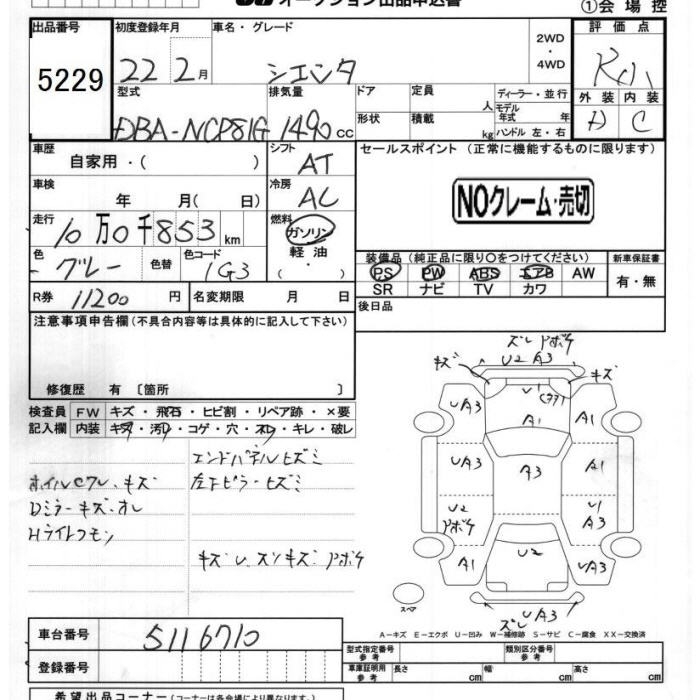 オークション出品申込書
①会場控
出品番号 初度登録年月 車名・グレード 2WD・4WD 評価点
5229 22 2月 シエンタ R
外装 内装
A C
型式 排気量 ドア 定員 人 ディーラー・並行
DBA-NCP81G 1490cc
形状 積載 kg モデル年式 年 ハンドル 左・右
車歴 自家用・( ) シフト AT セールスポイント (正常に機能するものに限ります)
車検 年 月( 日) 冷房 AC
NOクレーム・売切
走行 10万0千853km 燃料 ガソリン 軽油 ( ・ )
色 グレー 色替 色コード 1G3
装備品 (純正品に限り〇をつけてください) 新車保証書
PS PW ABS エアB AW 有・無
SR ナビ TV カワ
R券 11200円 名変期限 月 日 後日品
注意事項申告欄 (不具合内容等は具体的に記入して下さい)
修復歴 有 〔箇所 〕
検査員 FW キズ・飛石・ヒビ割・リペア跡・×要
記入欄 内装 キズ・汚レ・コゲ・穴・スレ・キレ・破レ
エンドパネルヒズミ
ホイルCワレ、キズ 左下ピラーヒズミ
Dミラーキズ、オレ
Hライトクモン
キズ U、スソキズ アボケ
ズレ アボケ
キズ U2 A3 キズ
UA3 U1 A1
A1
UA3 A3 A1
U2 アボケ U1 A3
A1 U2 UA3
スペア
ズレ UA3
A-キズ E-エクボ U-凹み W-補修跡 S-サビ C-腐食 XX-交換済
車台番号 5116710
登録番号
型式指定番号 参考 類別区分番号 参考
車庫証明用 参考 長さ cm 幅 cm 高さ cm
希望出品コーナー (コーナーは各会場により異なります)